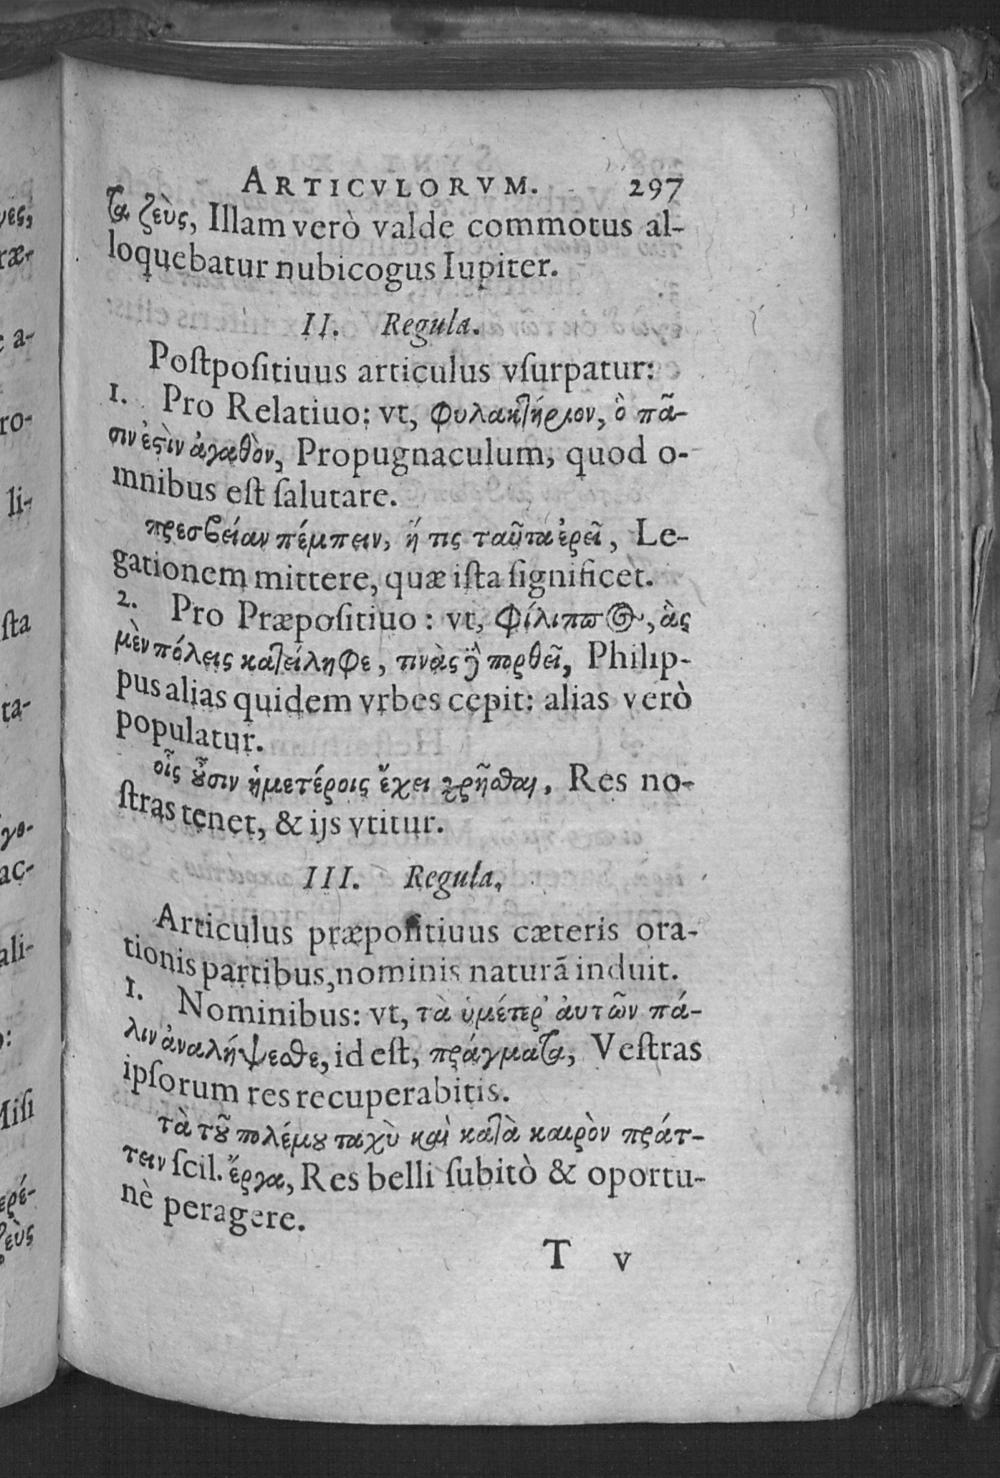 ARTICVLORVM. 297
τα ζεὺς, Illam verò valde commotus al-
loquebatur nubicogus Iupiter.
II. Regula.
Poſtpoſitiuus articulus vſurpatur:
1. Pro Relatiuo: vt, φυλακτήριον, ὃ πᾶ-
σιν ἐϛὶν ἀγαθὸν, Propugnaculum, quod o-
mnibus eſt ſalutare.
πρεσβείαν πέμπειν, ἥ τις ταῦτα ἐρεῖ, Le-
gationem mittere, quæ iſta ſignificet.
2. Pro Præpoſitiuo: vt, Φίλιππος, ἃς
μὲν πόλεις κατείληφε, τινὰς δὲ πορθεῖ, Philip-
pus alias quidem vrbes cepit: alias verò
populatur.
οἷς οὖσιν ἡμετέροις ἔχει χρῆσθαι, Res no-
ſtras tenet, & ijs vtitur.
III. Regula.
Articulus præpoſitiuus cæteris ora-
tionis partibus, nominis naturā induit.
1. Nominibus: vt, τὰ ὑμέτερ' αὐτῶν πά-
λιν ἀναλήψεσθε, id eſt, πράγματα, Veſtras
ipſorum res recuperabitis.
τὰ τοῦ πολέμου ταχὺ καὶ κατὰ καιρὸν πράτ-
τειν ſcil. ἔργα, Res belli ſubitò & oportu-
nè peragere.
T v